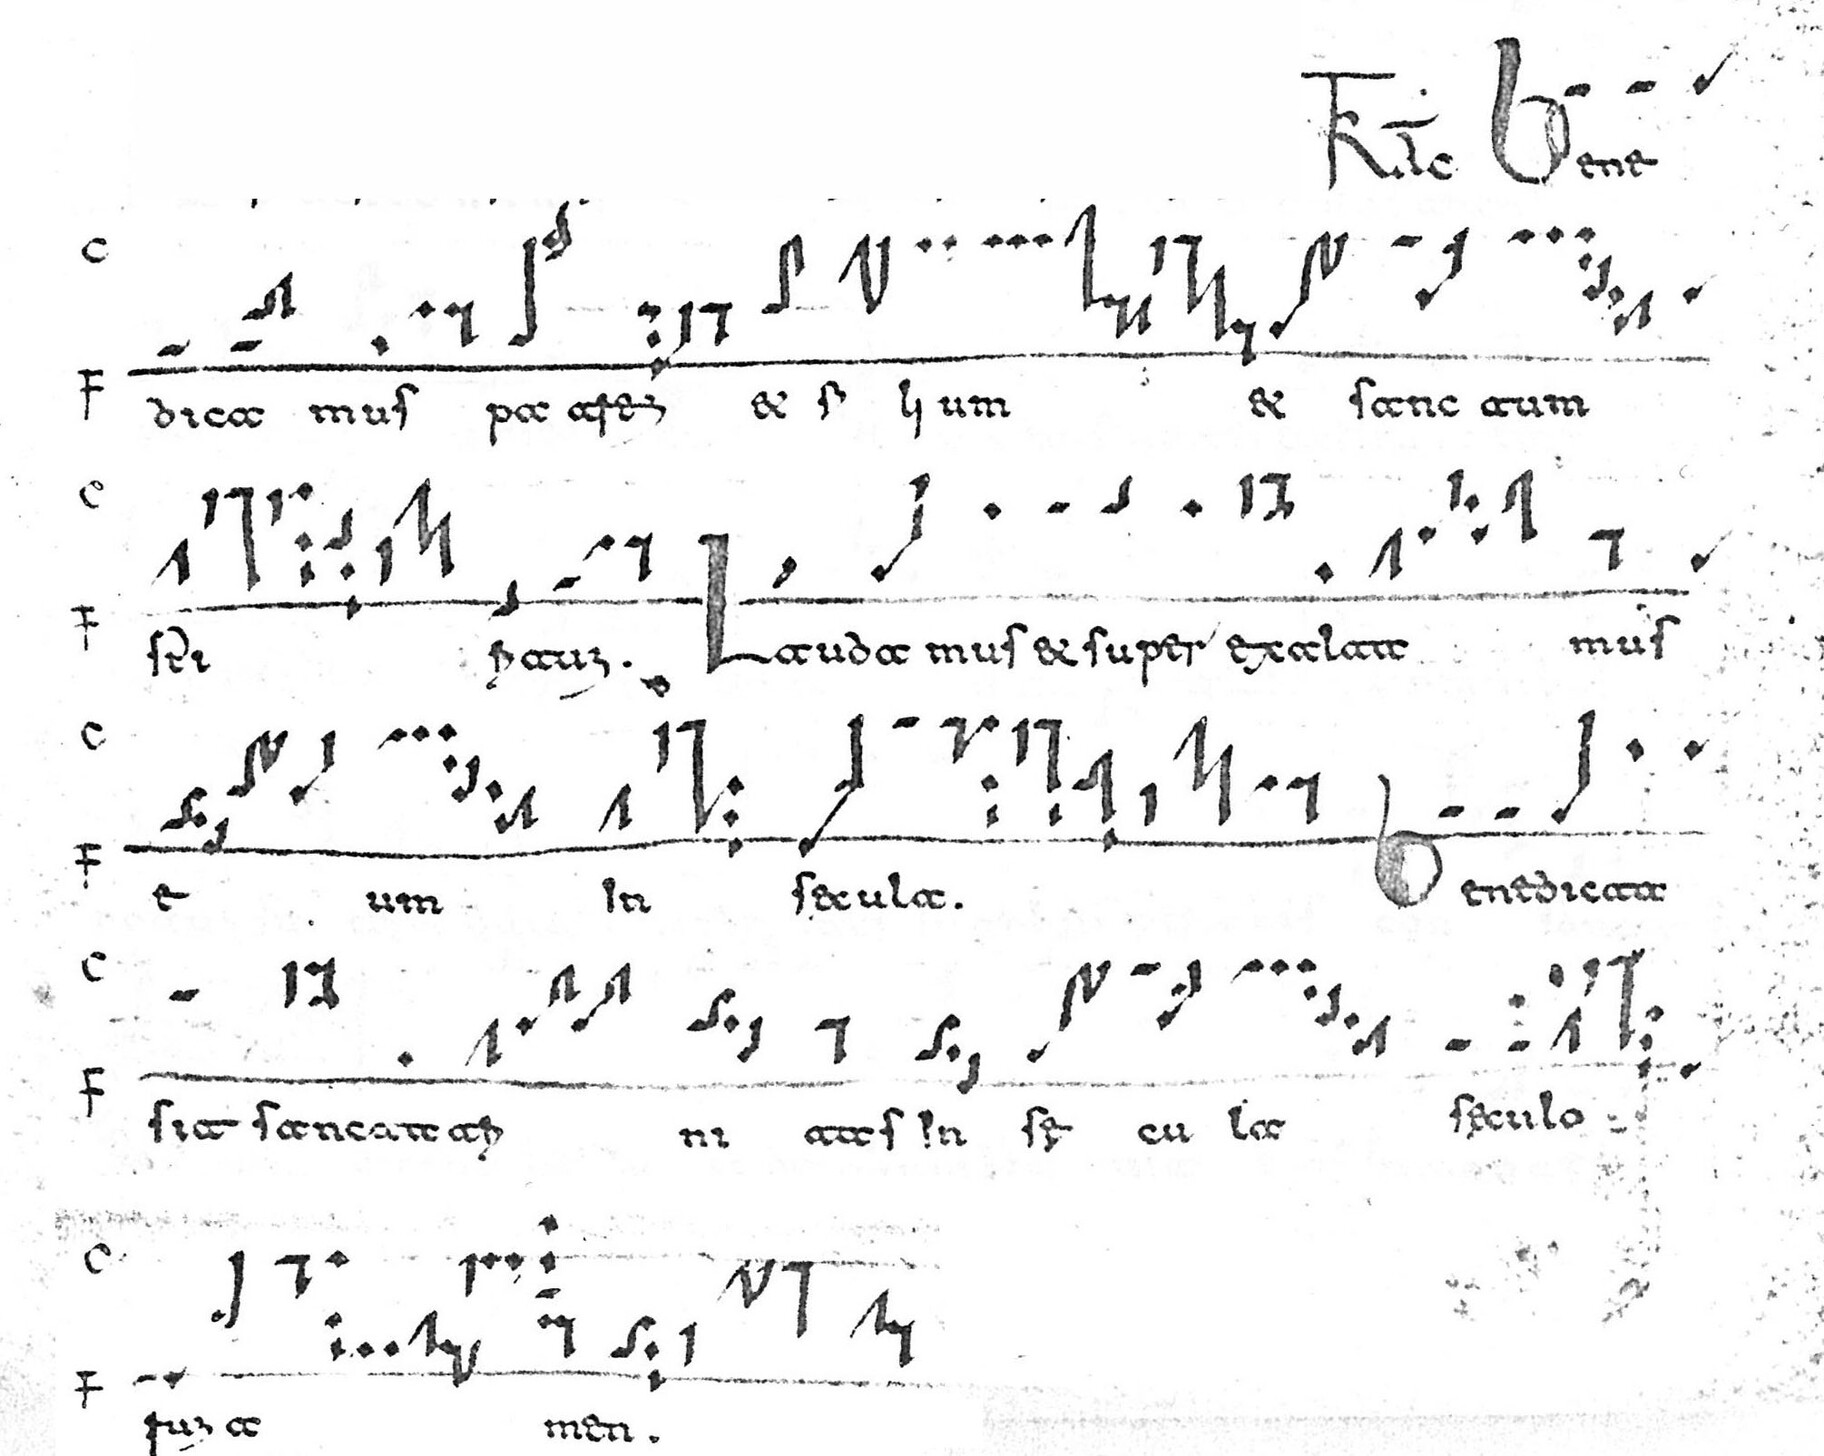 Bene
C
F dica mus pa treꝫ & fi lj um & sanc tum
C
F spi rituꝫ. Lauda mus & super exalta mus
C
F e um In secula. Benedicta
C
F sit sancta tri ni tas In sę cu la sęculo
C
F ruꝫ a men.